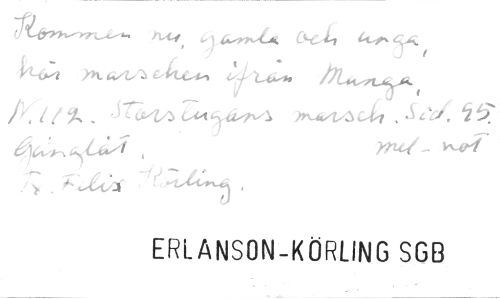 Kommen nu, gamla och unga,
hör marschen ifrån Munga,
N.112. Storstugans marsch. Sid. 95.
Gånglåt. mel-not
Tr. Felix Körling.
ERLANSON-KÖRLING SGB